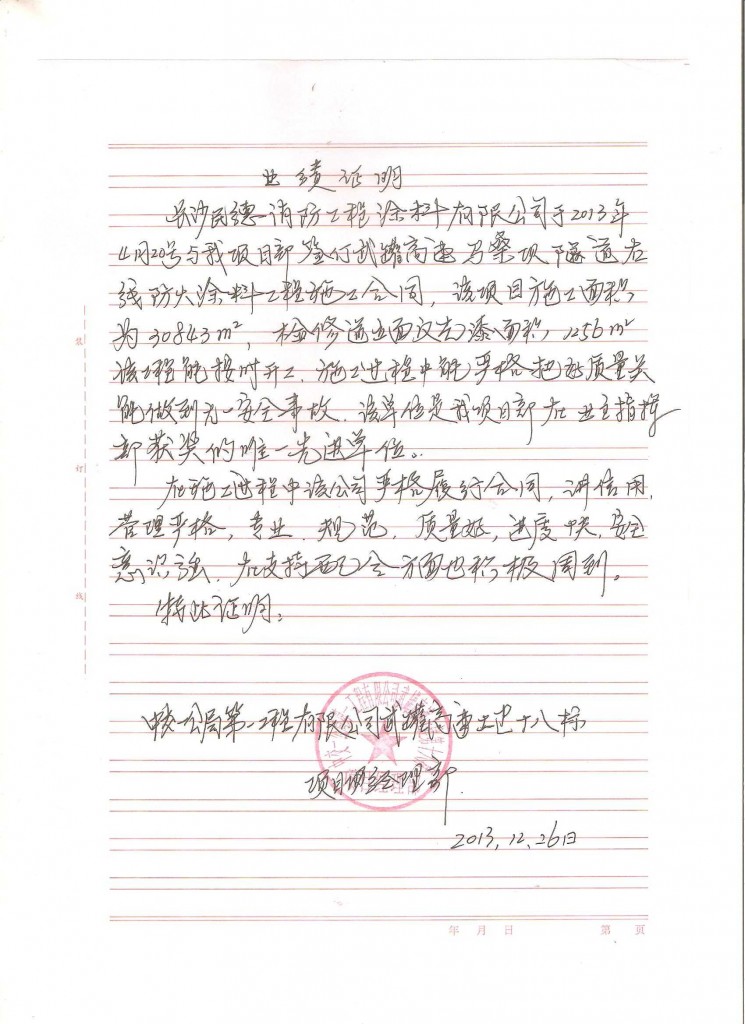 业绩证明
长沙民德消防工程涂料有限公司于2013年
4月20号与我项目部签订武罐高速马桑坝隧道右
线防火涂料工程施工合同，该项目施工面积
为30843m²，检修道立面反光漆面积1256m²
该工程能按时开工.施工过程中能严格把好质量关
能做到无一安全事故.该单位是我项目部在业主指挥
部获奖的唯一先进单位。
在施工过程中该公司严格履行合同,讲信用.
管理严格,专业.规范.质量好,进度快.安全
意识强.在支持配合方面也积极周到。
特此证明。
中交一公局第一工程有限公司武罐高速土建十八标
项目经理部
2013.12.26日
装
订
线
年 月 日
第 页